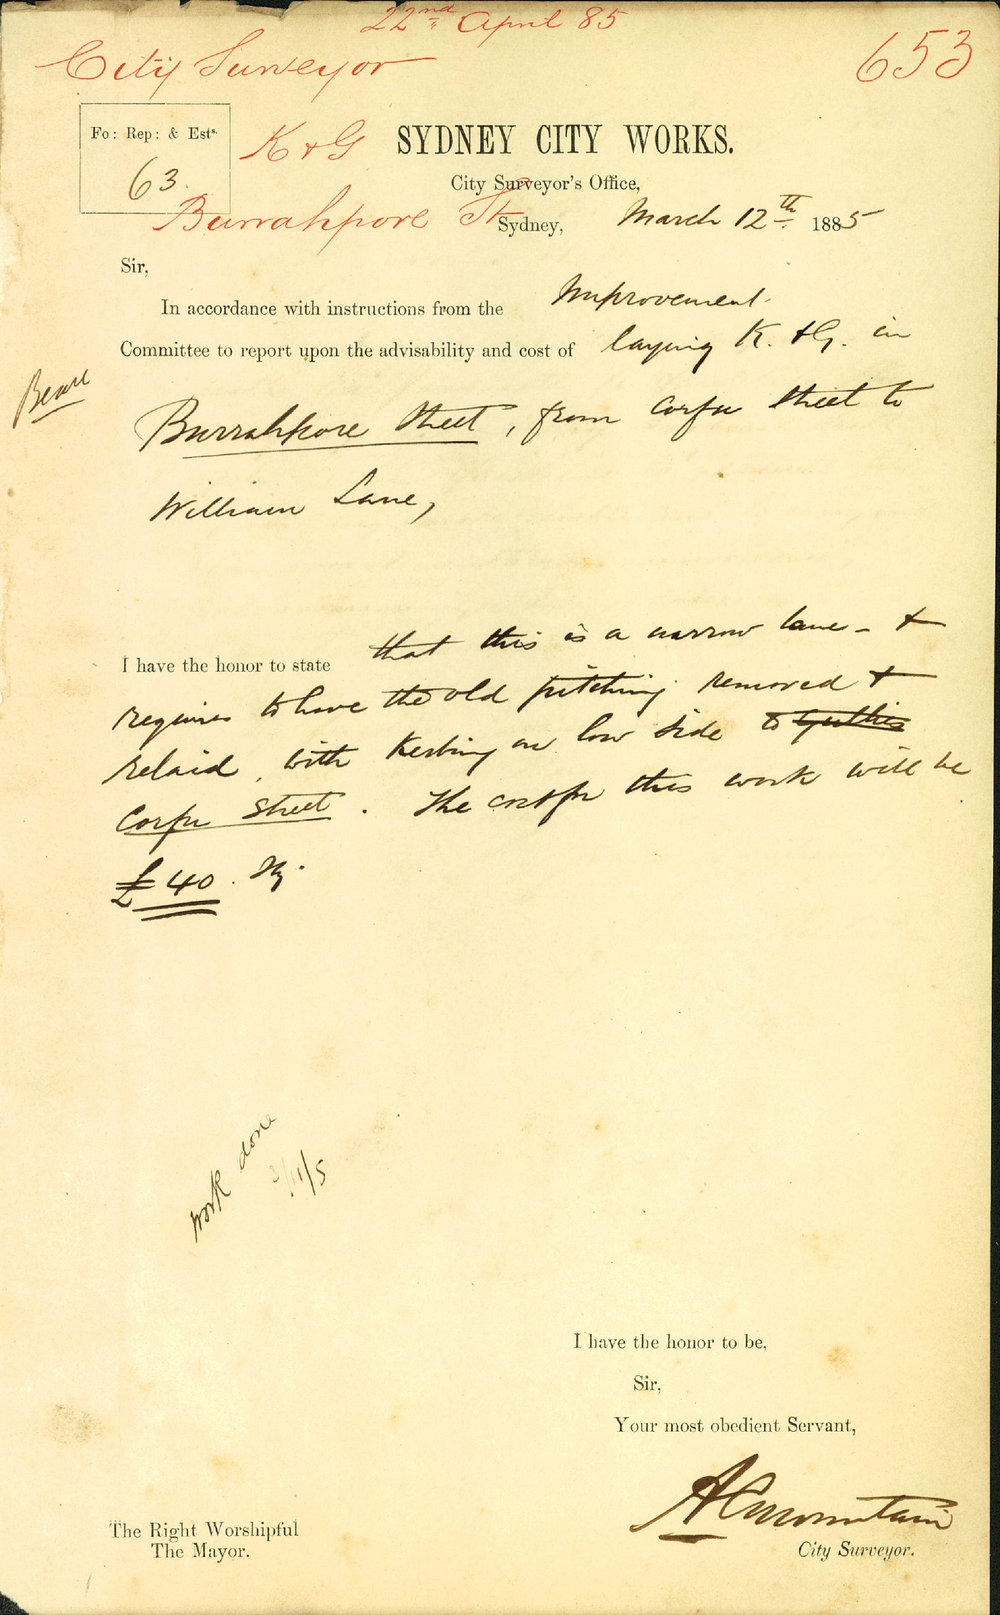 22nd April 85
City Surveyor
653
Fo: Rep: & Ests.
63.
K & G
SYDNEY CITY WORKS.
City Surveyor's Office,
Burrahpore St
Sydney, March 12th 1885
Sir,
In accordance with instructions from the Improvement
Committee to report upon the advisability and cost of laying K. & G. in
Burrahpore Street, from Corfu Street to
William Lane,
I have the honor to state that this is a narrow lane - &
requires to have the old pitching removed &
relaid, with Kerbing on low side to
Corfu Street. The cost for this work will be
£40.
work done
/11/5
I have the honor to be,
Sir,
Your most obedient Servant,
A C Mountain
City Surveyor.
The Right Worshipful
The Mayor.